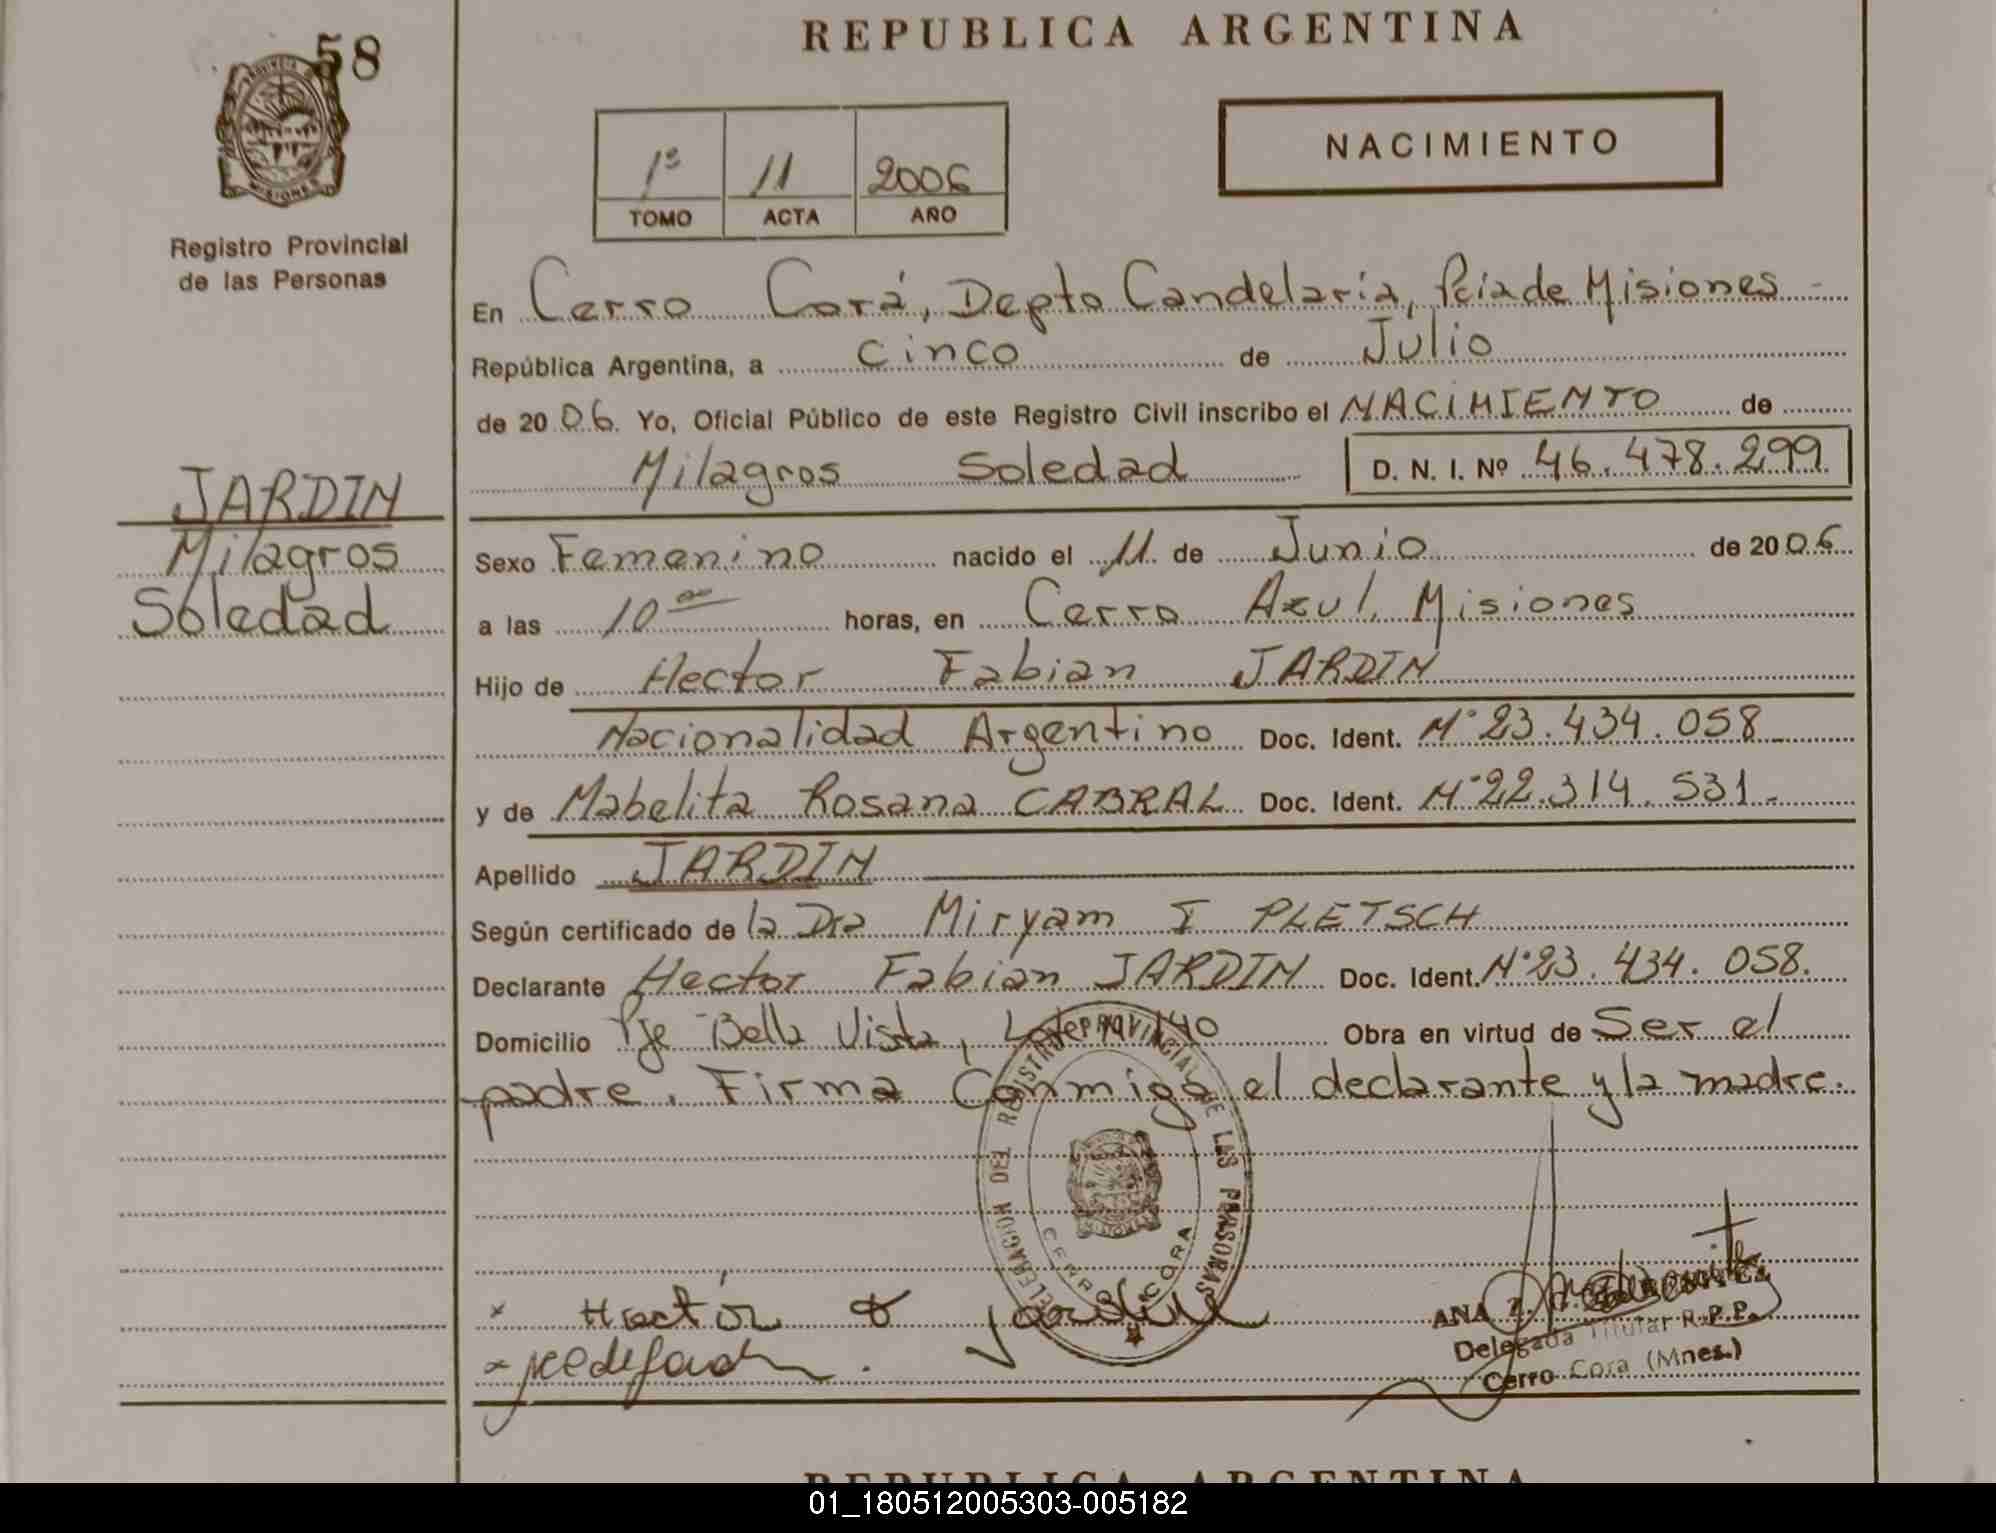 58
REPUBLICA ARGENTINA
PROVINCIA DE
MISIONES
Registro Provincial
de las Personas
NACIMIENTO
1º 11 2006
TOMO ACTA AÑO
En Cerro Corá, Depto Candelaria, Pcia de Misiones -
República Argentina, a cinco de Julio
de 2006. Yo, Oficial Público de este Registro Civil inscribo el NACIMIENTO de
Milagros Soledad D. N. I. Nº 46.478.299
JARDIN
Milagros
Soledad
Sexo Femenino nacido el 11 de Junio de 2006
a las 10 00 horas, en Cerro Azul, Misiones
Hijo de Hector Fabian JARDIN
Nacionalidad Argentino Doc. Ident. Nº 23.434.058
y de Mabelita Rosana CABRAL Doc. Ident. Nº 22.314.531 -
Apellido JARDIN
Según certificado de la Dra Miryam I PLETSCH
Declarante Hector Fabian JARDIN Doc. Ident. Nº 23.434.058.
Domicilio Pje Bella Vista, Lote 140 Obra en virtud de Ser el
padre. Firma Conmigo el declarante y la madre.
DELEGACION DEL REGISTRO PROVINCIAL DE LAS PERSONAS
CERRO CORA
x Hector
ANA
Delegada Titular R.P.P.
Cerro Cora (Mnes.)
REPUBLICA ARGENTINA
01_180512005303-005182